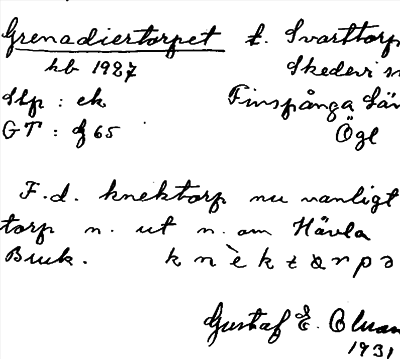 Grenadiertorpet t. Svarttorp
hb 1927 Skedevi
Stp : ek Finspånga Län
GT : f 65 Ögl
F.d. knektorp nu vanligt
torp n. ut n. om Hävla
Bruk. knèktɔrpə
Gustaf E.
1931